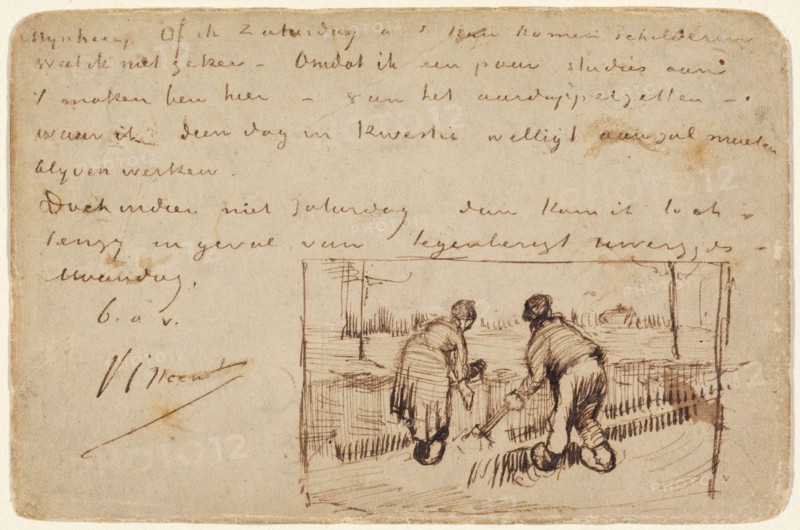 Mynheer, Of ik Zaturdag a s kan komen schilderen
weet ik niet zeker – Omdat ik een paar studies aan
't maken ben hier – van het aardappelzetten –
waar ik dien dag in kwestie welligt aan zal moeten
blyven werken.
Doch indien niet Zaturdag dan kom ik toch
tenzy in geval van tegenberigt uwerzyds –
Maandag.
b. a v.
Vincent
PHOTO12